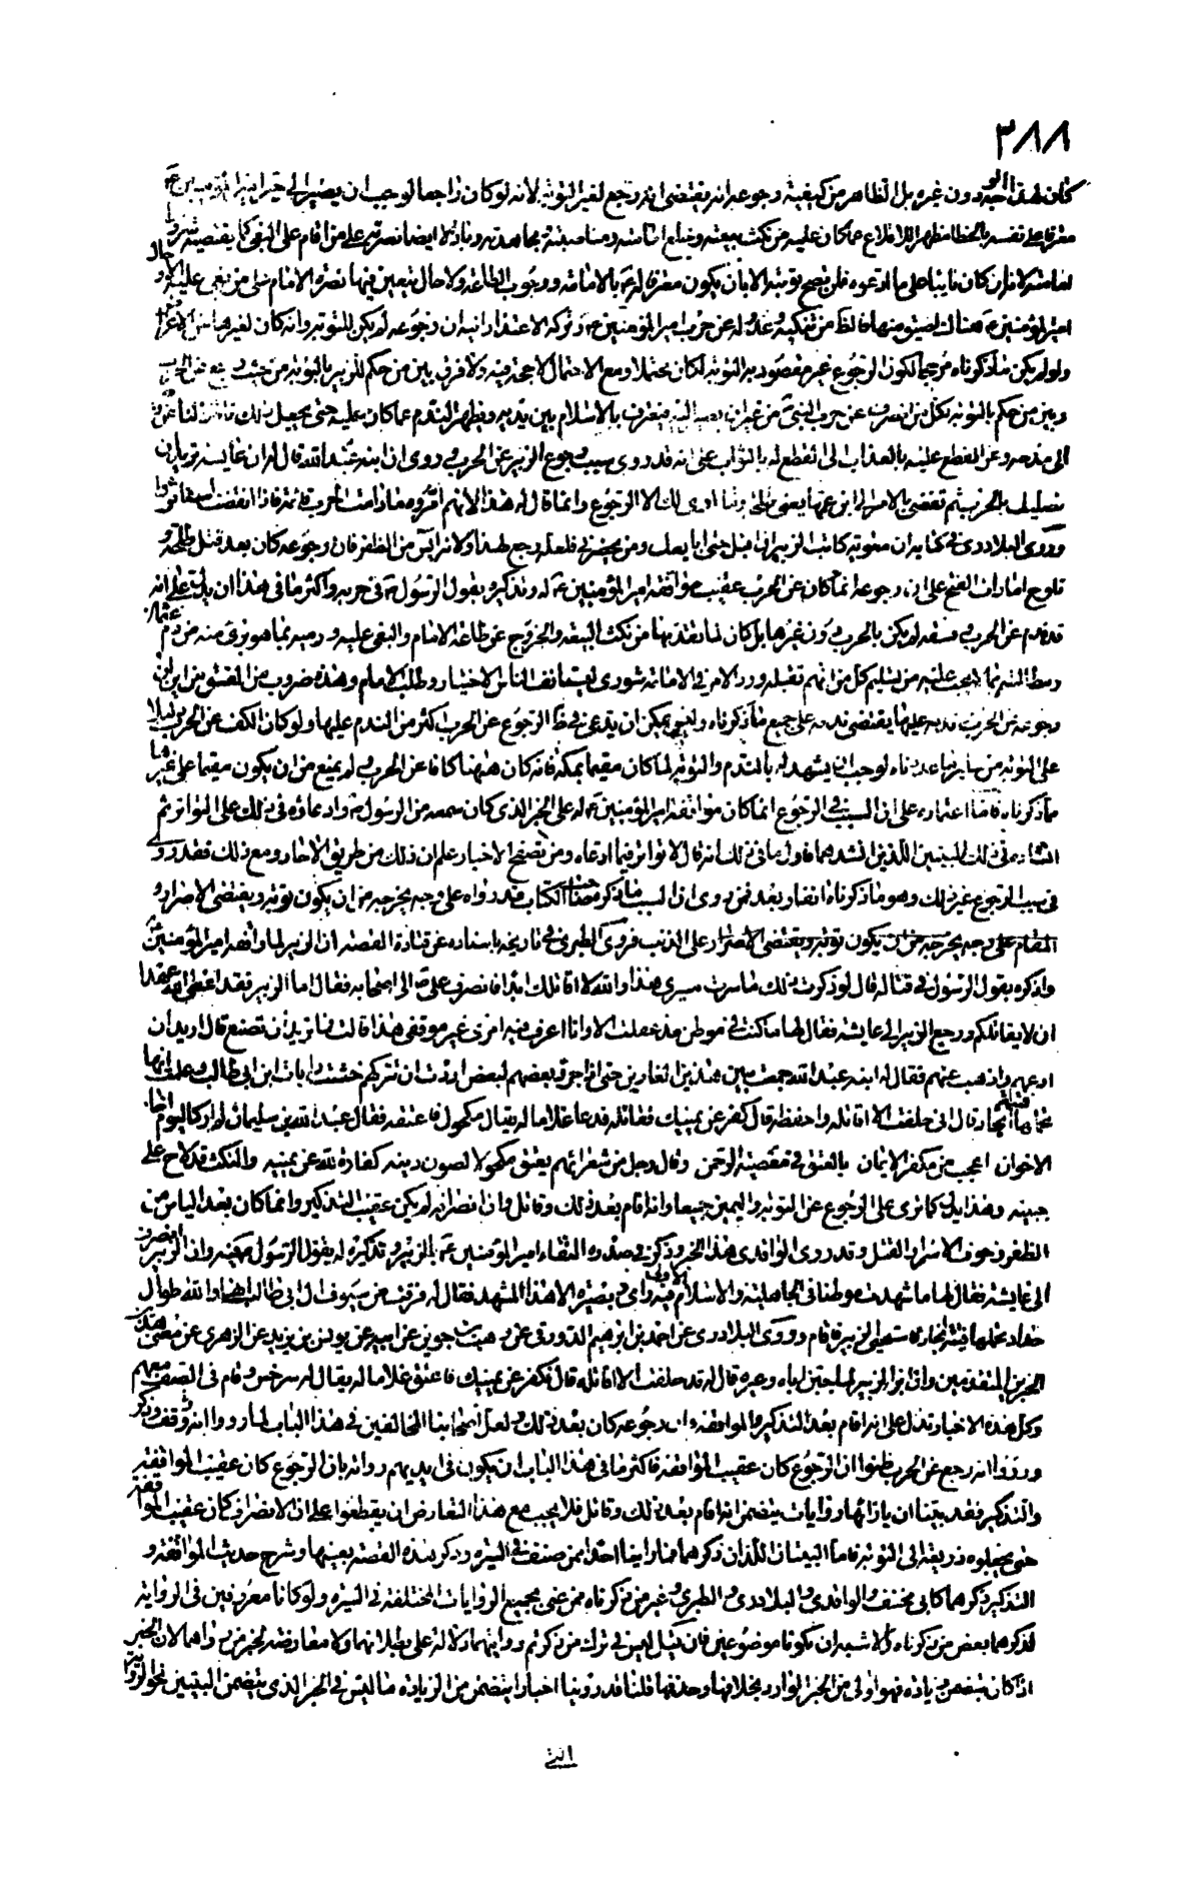 ٣٨٨
كان لهذا الوجه دون غيره بل الظاهر من كيفية رجوعه انه يقتضى انه رجع لغير التوبة لانه لو كان راجعا لوجب ان يصير الى حيز امير المؤمنين ع
معترفا على نفسه بالخطا مظهرا للاقلاع عما كان عليه من نكث بيعته وخلع امامته ومناصبته بمجاهدته وباذلا ايضا نصرته على من اقام على البغى كما يقتضيه شروط
امامته لانه ان كان تايبا على ما ادعوه فلن تصح توبته الا بان يكون مقرا له ع بالامامة ووجوب الطاعة ولا حال يتعين فيها نصرة الامام على من بغى عليه الا وحال
امير المؤمنين ع هناك اضيق منها
ولو لم يكن ما ذكرناه مرجحا لكون الرجوع غير مقصود به التوبة لكان محتملا ومع الاحتمال لا حجة فيه ولا فرق بين من حكم للزبير بالتوبة من حيث رجع عن الحرب
وبين من حكم بالتوبة لكل من انصرف عن حرب النبى ص من غير ان يصير اليه معترف بالاسلام بين يديه ويظهر الندم عما كان عليه حتى يجعل ذلك
الى مدحه وعن القطع عليه بالعذاب الى القطع له بالثواب على انه قد روى سبب رجوع الزبير عن الحرب وروى ان ابنه عبد الله قال له ان عايسة تريد ان
وروى البلاذرى
تلوح امارات الفتح على ان رجوعه انما كان عن الحرب عقيب موافقة امير المؤمنين ع له وتذكيره بقول الرسول ص فى حربه واكثر ما فى هذا ان يدل على انه
قد ندم عن الحرب وفسقه لم يكن بالحرب دون غيرها بل كان لما تقدمها من نكث البيعة والخروج عن طاعة الامام والبغى عليه ورميه بما هو برئ منه من دم عثمان
ومطالبته بما لا يجب عليه من تسليم كل من اتهم بقتله ورد الامر فى الامامة شورى ليستانف الناس الاختيار وطلب الامام وهذه ضروب من الفسق من اين ان
رجوعه عن الحرب ندمه عليها يقتضى ندمه على جميع ما ذكرناه وليس يمكن ان يدعى فى الرجوع عن الحرب اكثر من الندم عليها ولو كان الكف عن الحرب دليلا
على التوبة من ساير ما عددناه لوجب ان يشهد له بالندم والتوبة لما كان مقيما بمكة فانه كان هنهنا كافا عن الحرب ولم يمنع من ان يكون مقيما على غيرها
مما ذكرناه فاما اعتماده على ان السبب فى الرجوع انما كان موافقة امير المؤمنين ع له على الخبر الذى كان سمعه من الرسول ص وادعاؤه فى ذلك على التواتر ثم
استشهاده فى ذلك بالبيتين اللذين انشدهما فاول ما فى ذلك انه قال لا تواتر فيما ادعاه ومن تصفح الاخبار علم ان ذلك من طريق الاحاد ومع ذلك فقد روى
فى سبب الرجوع غير ذلك وهو ما ذكرناه انفا وبعد فمن روى ان السبب ما ذكره صاحب الكتاب قد رواه على وجه يخرجه من ان يكون توبة ويقتضى الاصرار و
المقام على وجه يخرجه من ان يكون توبة ويقتضى الاصرار على الذنب فروى الطبرى فى تاريخه باسناده عن قتادة القصة ان الزبير لما واقفه امير المؤمنين ع
واذكره بقول الرسول فى قتاله قال لو ذكرت ذلك ما سرت مسيرى هذا والله لا اقاتلك ابدا فانصرف على ص الى اصحابه فقال اما الزبير فقد اعطى الله عهدا
ان لا يقاتلكم ورجع الزبير الى عايشة فقال لها ما كنت فى موطن مذ عقلت الا وانا اعرف فيه امرى غير موقفى هذا قالت فما تريد أن تصنع قال اريد ان
ادعهم واذهب عنهم فقال له ابنه عبد الله جمعت بين هذين الغارين حتى اذا جرد بعضهم لبعض اردت ان تتركهم خشيت رايات ابن ابى طالب وعلمت انها
تحملها فتية انجاد قال انى حلفت الا اقاتله واحفظه قال كفر عن يمينك فقاتله فدعا غلاما له يقال مكحول فاعتقه فقال عبد الرحمن بن سليمان لم ار كاليوم اخا
الاخوان اعجب من مكفر الايمان بالعتق فى معصية الرحمن وقال رجل من شعرائهم يعتق مكحولا لصون دينه كفارة لله عن يمينه والنكث قد لاح على
جبينه وهذا يدل كما ترى على الرجوع عن التوبة واليمين جميعا وانه اقام بعد ذلك وقاتل وان انصرافه لم يكن عقيب التذكير وانما كان بعد الياس من
الظفر وخوف الاسر او القتل وقد روى الواقدى هذا الخبر وذكر فى صدره التقاء امير المؤمنين ع بالزبير وتذكيره له بقول الرسول ص بعينه وان الزبير انصرف
الى عايشة فقال لها ما شهدت موطنا فى الجاهلية والاسلام الا ولى فيه راى وبصيرة الا هذا المشهد فقال له فرقت من سيوف ال ابى طالب انها والله طوال
حداد تحملها فتية انجاد فاستحيى الزبير فاقام وروى البلاذرى عن احمد بن ابرهيم الدورقى عن وهب بن جرير عن ابيه عن يونس بن يزيد عن الزهرى عن معنى هذين
الخبرين المتقدمين وان ابن الزبير لما جبن اباه وعيره قال له قد حلفت الا اقاتله قال فكفر عن يمينك فاعتق غلاما له يقال له سرجس وقام فى الصف معهم
وكل هذه الاخبار تدل على انه اقام بعد التذكير والموافقة وان رجوعه كان بعد ذلك ولعل اصحابنا المخالفين فى هذا الباب لما رووا انه وقف وذكر
ورووا انه رجع عن الحرب ظنوا ان الرجوع كان عقيب الموافقة فاكثر ما فى هذا الباب ان يكون فى ايديهم رواية بان الرجوع كان عقيب الموافقة
والتذكير فقد بينا ان بازائها روايات يتضمن انه اقام بعد ذلك وقاتل فلا يجب مع هذا التعارض ان يقطعوا على ان الانصراف كان عقيب الموافقة
حتى يجعلوه ذريعة الى التوبة فاما البيتان اللذان ذكرهما فما راينا احدا ممن صنف فى السيرة وذكر هذه القصة بعينها وشرح حديث الموافقة و
التذكير ذكرهما كابى مخنف والواقدى والبلاذرى والطبرى وغير من ذكرناه ممن عنى بجميع الروايات المختلفة فى السيرة ولو كانا معروفين فى الرواية
لذكرهما بعض من ذكرناه والاشبه ان يكونا موضوعين فان قيل ليس فى ترك من ذكرتم روايتهما دلالة على بطلانهما ولا معارضة لخبر من رواهما لان الخبر
اذا كان يتضمن زيادة فهو اولى من الخبر الوارد بخلافها وحذفها قلنا قد روينا اخبارا يتضمن من الزيادة ما ليس فى الخبر الذى يتضمن البيتين نحو الرواية
التى